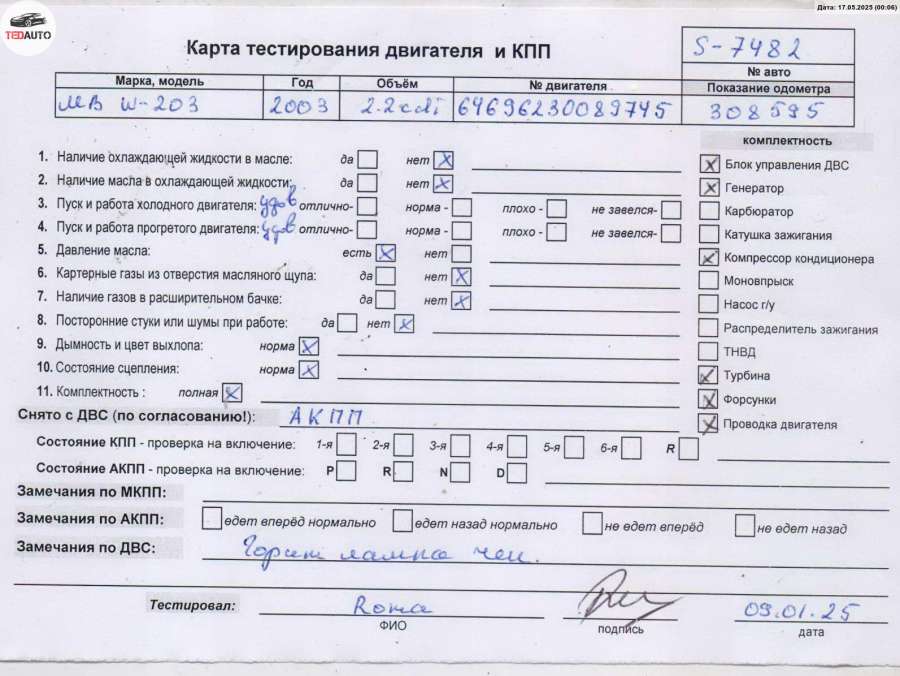 Дата: 17.05.2025 (00:06)
TEDAUTO
Карта тестирования двигателя и КПП
S-7482
№ авто
Марка, модель Год Объём № двигателя Показание одометра
МВ W-203 2003 2.2 cdi 64696230089745 308595
комплектность
1. Наличие охлаждающей жидкости в масле: да нет X
X Блок управления ДВС
2. Наличие масла в охлаждающей жидкости: да нет X
X Генератор
3. Пуск и работа холодного двигателя: удов отлично- норма - плохо - не завелся-
Карбюратор
4. Пуск и работа прогретого двигателя: удов отлично- норма - плохо - не завелся-
Катушка зажигания
5. Давление масла: есть X нет
X Компрессор кондиционера
6. Картерные газы из отверстия масляного щупа: да нет X
Моновпрыск
7. Наличие газов в расширительном бачке: да нет X
Насос г/у
8. Посторонние стуки или шумы при работе: да нет X
Распределитель зажигания
9. Дымность и цвет выхлопа: норма X
ТНВД
10. Состояние сцепления: норма X
X Турбина
11. Комплектность : полная X
X Форсунки
Снято с ДВС (по согласованию!): АКПП
X Проводка двигателя
Состояние КПП - проверка на включение: 1-я 2-я 3-я 4-я 5-я 6-я R
Состояние АКПП - проверка на включение: P R N D
Замечания по МКПП:
Замечания по АКПП: едет вперёд нормально едет назад нормально не едет вперёд не едет назад
Замечания по ДВС: Горит лампа чек.
Тестировал: Roma 09.01.25
ФИО подпись дата